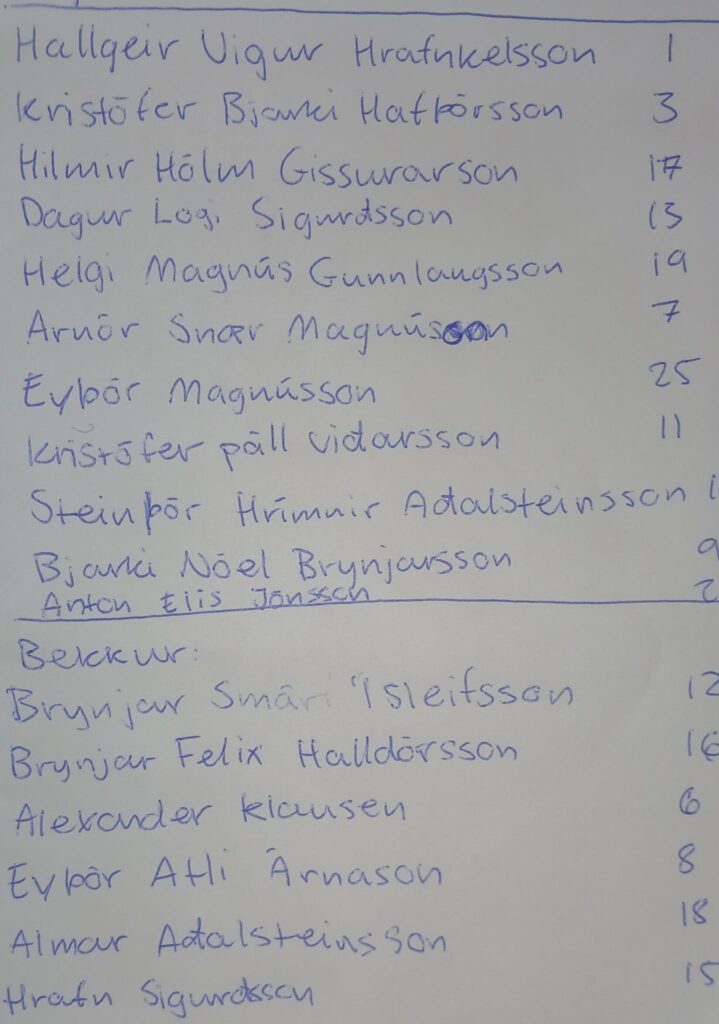 Hallgeir Vigur Hrafnkelsson 1
Kristófer Bjarki Hafþórsson 3
Hilmir Hólm Gissurarson 17
Dagur Logi Sigurdsson 13
Helgi Magnús Gunnlaugsson 19
Arnór Snær Magnússon 7
Eyþór Magnússon 25
Kristófer páll viðarsson 11
Steinþór Hrímnir Aðalsteinsson 1
Bjarki Nóel Brynjarsson 9
Anton Elis Jónsson 2
Bekkur:
Brynjar Smári Ísleifsson 12
Brynjar Felix Halldórsson 16
Alexander Klausen 6
Eyþór Atli Árnason 8
Almar Aðalsteinsson 18
Hrafn Sigurðsson 15